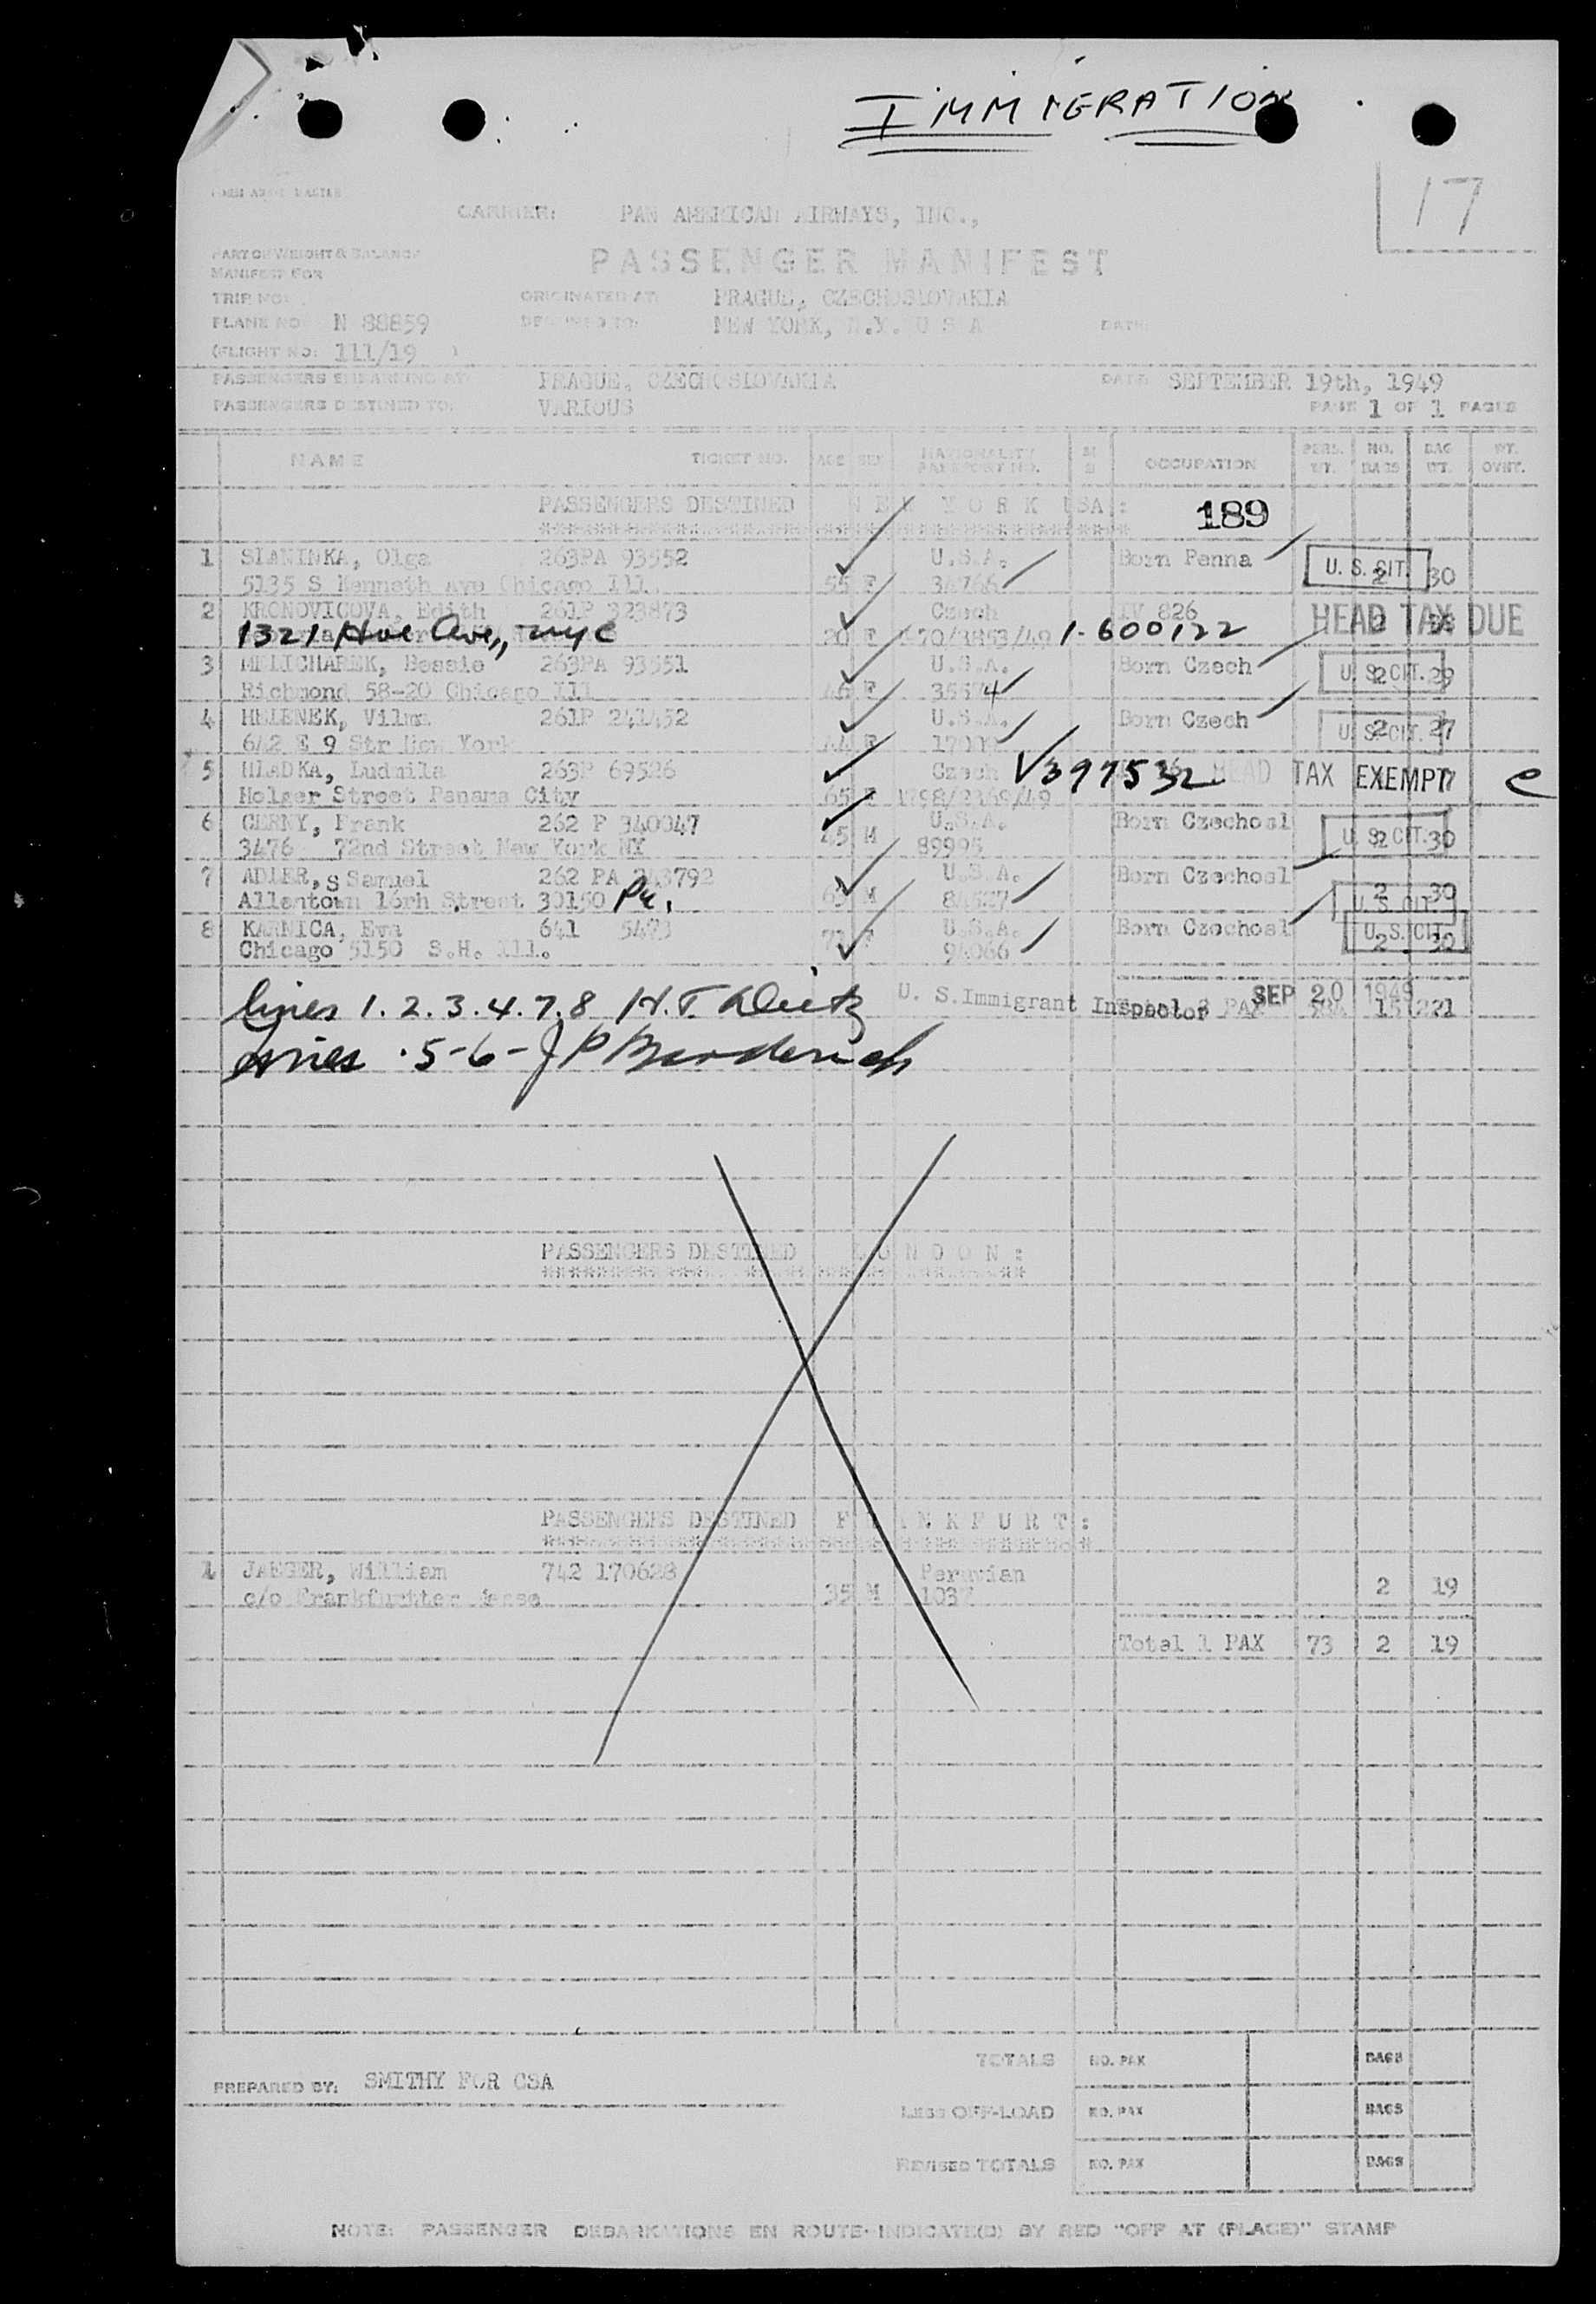 IMMIGRATION
17
CARRIER: PAN AMERICAN AIRWAYS, INC.,
PART OF WEIGHT & BALANCE
MANIFEST FOR
PASSENGER MANIFEST
TRIP NO. ORIGINATED AT: PRAGUE, CZECHOSLOVAKIA
PLANE NO. N 88859 DESTINED TO: NEW YORK, N.Y. U S A DATE:
(FLIGHT NO. 111/19 )
PASSENGERS EMBARKING AT: PRAGUE, CZECHOSLOVAKIA DATE SEPTEMBER 19th, 1949
PASSENGERS DESTINED TO: VARIOUS PAGE 1 OF 1 PAGES
NAME TICKET NO. AGE SEX NATIONALITY PASSPORT NO. OCCUPATION PERS. WT. NO. BAGS BAG WT. WT. OVHT.
PASSENGERS DESTINED N E W Y O R K USA: 189
1 SLANINKA, Olga 263PA 93552 U.S.A. Born Penna U. S. CIT.
5135 S Kenneth Ave Chicago Ill. 55 F 34766 2 30
2 KRONOVICOVA, Edith 261P 323873 Czech IV 826 HEAD TAX DUE
1321 Hoe Ave, NYC 20 F 1-600122
3 MELICHAREK, Bessie 263PA 93551 U.S.A. Born Czech U. S. CIT.
Richmond 58-20 Chicago Ill 46 F 35574 2 29
4 HELENEK, Vilma 261P 241452 U.S.A. Born Czech U. S. CIT.
642 E 9 Str New York 44 F 2 27
5 HLADKA, Ludmila 263P 69526 Czech V397532 HEAD TAX EXEMPT
Holger Street Panama City 65 F
6 CERNY, Frank 262 P 340047 U.S.A. Born Czechosl U. S. CIT.
3476 72nd Street New York NY 45 M 89995 2 30
7 ADLER, S Samuel 262 PA 343792 U.S.A. Born Czechosl
Allentown 16rh Street 30150 Pa. 63 M 84527 2 30 U. S. CIT.
8 KARNICA, Eva 641 5473 U.S.A. Born Czechosl U. S. CIT.
Chicago 5150 S.H. Ill. 94066 2 30
lines 1.2.3.4.7.8 H.T. Deitz U. S. Immigrant Inspector SEP 20 1949
15 221
lines 5-6- J P Broderick
PASSENGERS DESTINED L O N D O N :
PASSENGERS DESTINED F R A N K F U R T :
1 JAEGER, William 742 170628 Peruvian
c/o Frankfurhter Messe 35 M 2 19
Total 1 PAX 73 2 19
TOTALS NO. PAX BAGS
PREPARED BY: SMITHY FOR CSA
LESS OFF-LOAD NO. PAX BAGS
REVISED TOTALS NO. PAX BAGS
NOTE: PASSENGER DEBARKATIONS EN ROUTE INDICATE(D) BY RED "OFF AT (PLACE)" STAMP